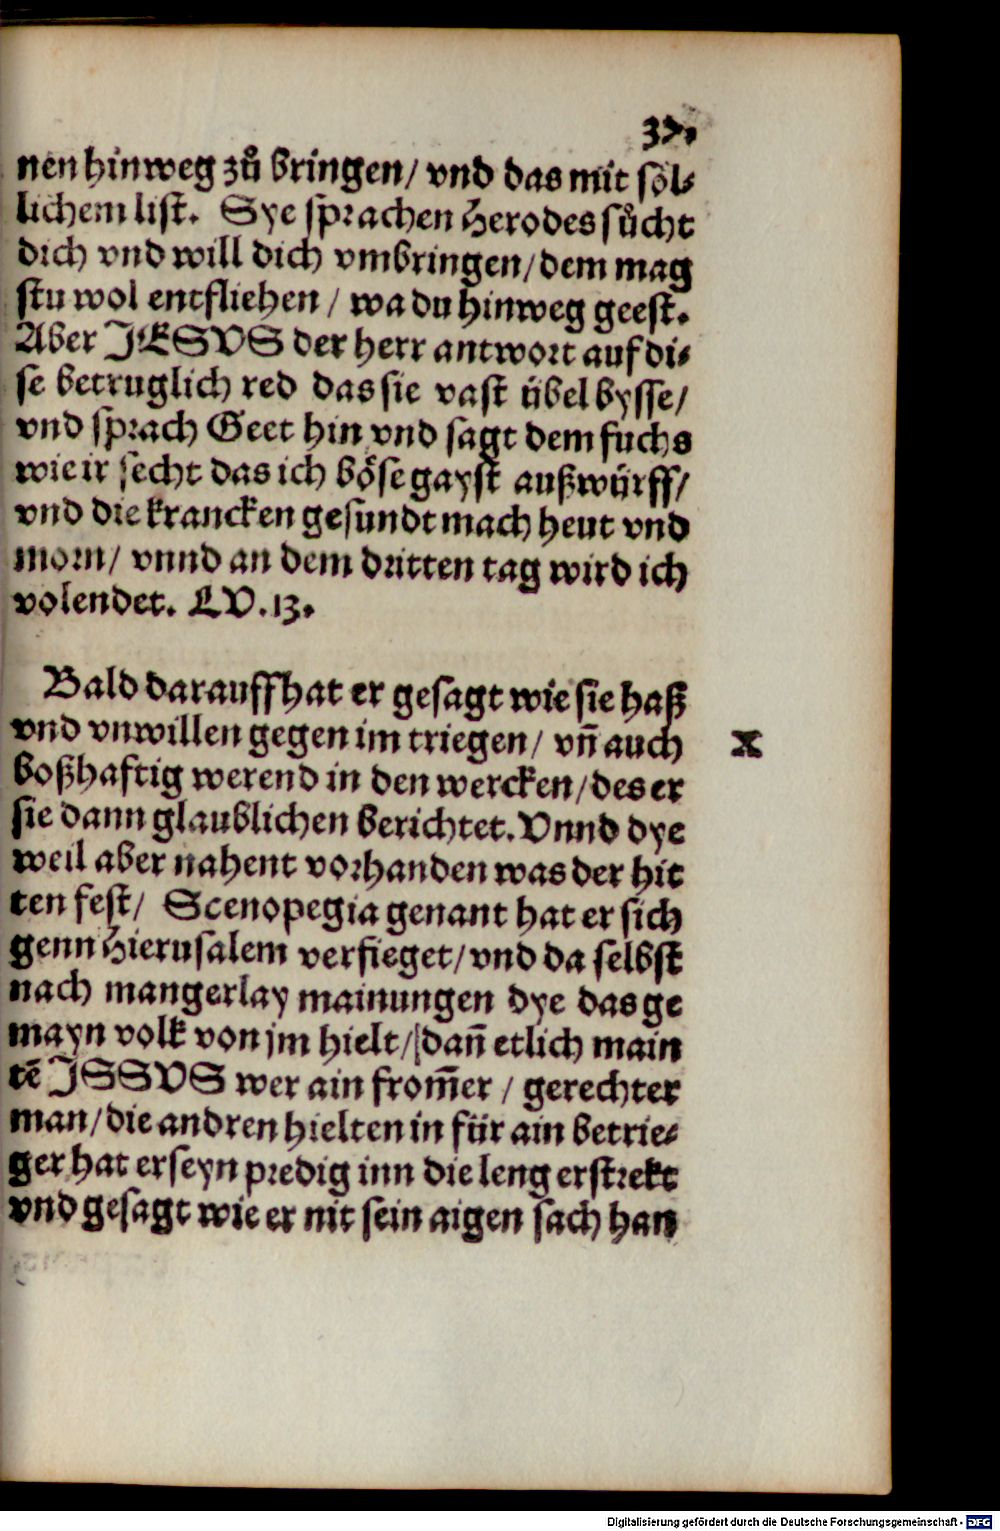 37.
nen hinweg zů bringen/ vnd das mit söl⸗
lichem list. Sye sprachen Herodes sůcht
dich vnd will dich vmbringen/ dem mag
stu wol entfliehen/ wa du hinweg geest.
Aber JESVS der herr antwort auf di⸗
se betruglich red das sie vast übel bysse/
vnd sprach Geet hin vnd sagt dem fuchs
wie ir secht das ich böse gayst außwürff/
vnd die krancken gesundt mach heut vnd
morn/ vnnd an dem dritten tag wird ich
volendet. LV. 13.
Bald darauff hat er gesagt wie sie haß
vnd vnwillen gegen im triegen/ vñ auch
X
boßhaftig werend in den wercken/ des er
sie dann glaublichen berichtet. Vnnd dye
weil aber nahent vorhanden was der hit
ten fest/ Scenopegia genant hat er sich
genn Hierusalem verfieget/ vnd da selbst
nach mangerlay mainungen dye das ge
mayn volk von jm hielt/ dañ etlich main
tē JSSVS wer ain from̄er / gerechter
man/ die andren hielten in für ain betrie⸗
ger hat er seyn predig inn die leng erstrekt
vnd gesagt wie er nit sein aigen sach han
Digitalisierung gefördert durch die Deutsche Forschungsgemeinschaft - DFG